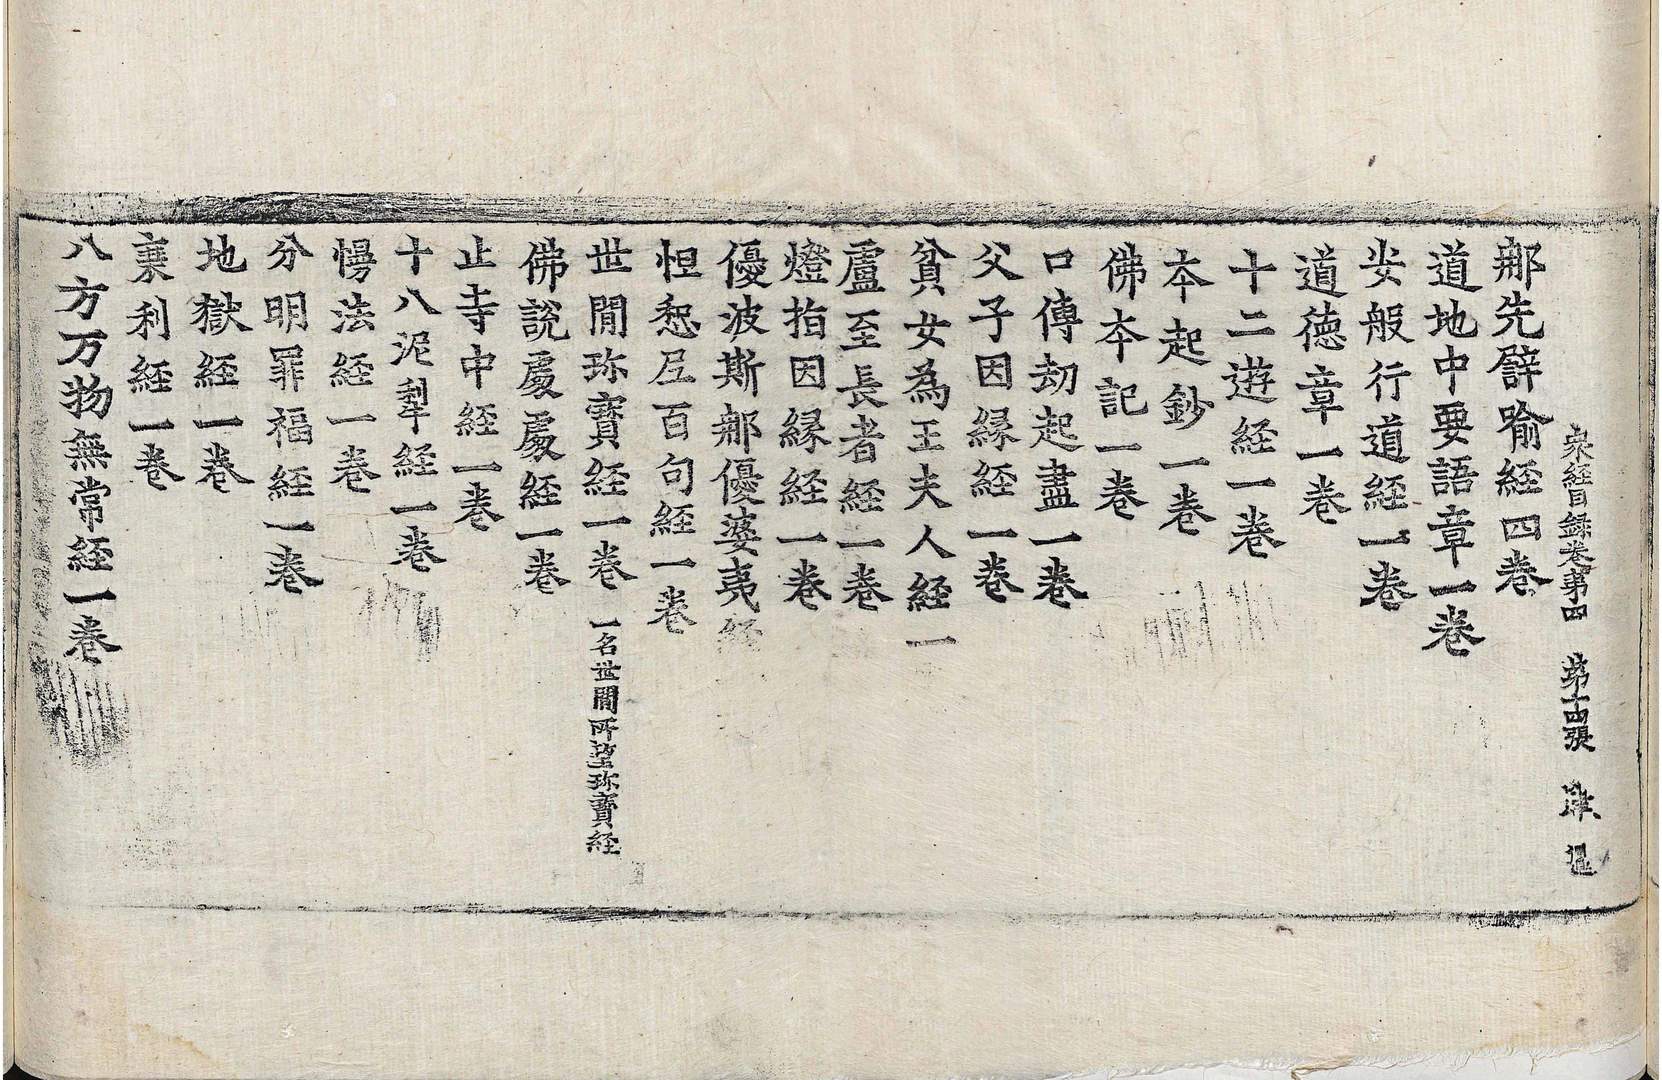 衆経目録卷第四 第十四張
那先譬喻経四卷
道地中要語章一卷
安般行道経一卷
道徳章一卷
十二遊経一卷
本起鈔一卷
佛本記一卷
口傳劫起盡一卷
父子因縁経一卷
貧女為王夫人経一
盧至長者経一卷
燈指因縁経一卷
優波斯那優婆夷経
怛惒尼百句経一卷
世間珎寶経一卷 一名世間所望珎寶経
佛説處處経一卷
止寺中経一卷
十八泥犁経一卷
慢法経一卷
分明罪福経一卷
地獄経一卷
棄利経一卷
八方万物無常経一卷